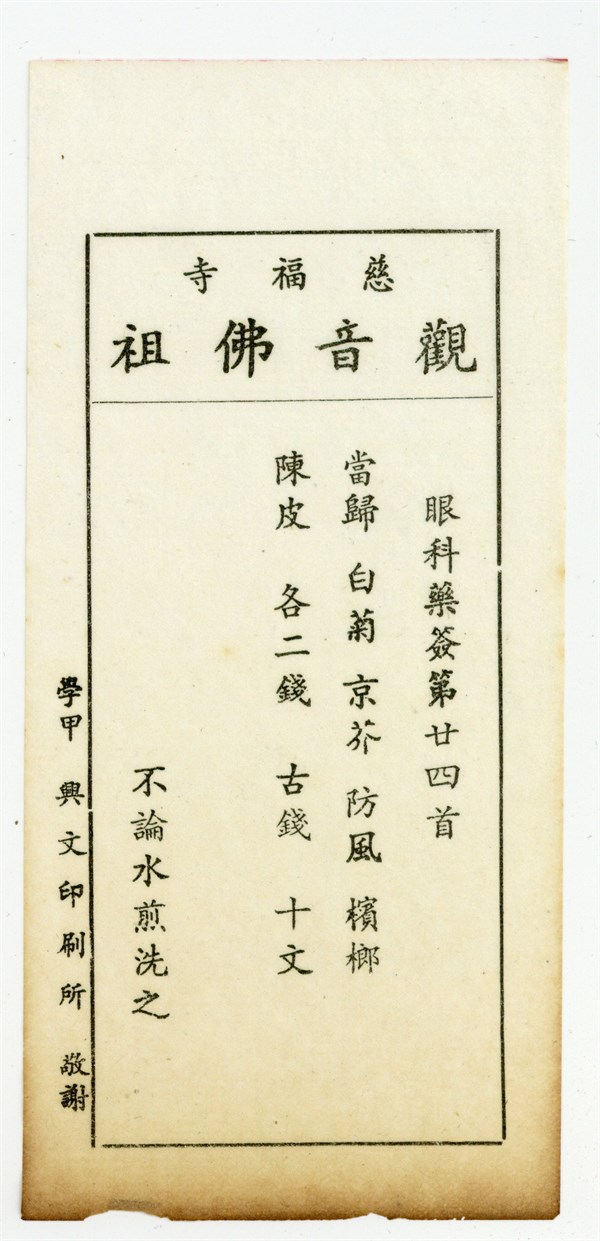 慈福寺
觀音佛祖
眼科藥簽第廿四首
當歸 白菊 京芥 防風 檳榔
陳皮 各二錢 古錢 十文
不論水煎洗之
學甲 興文印刷所 敬謝